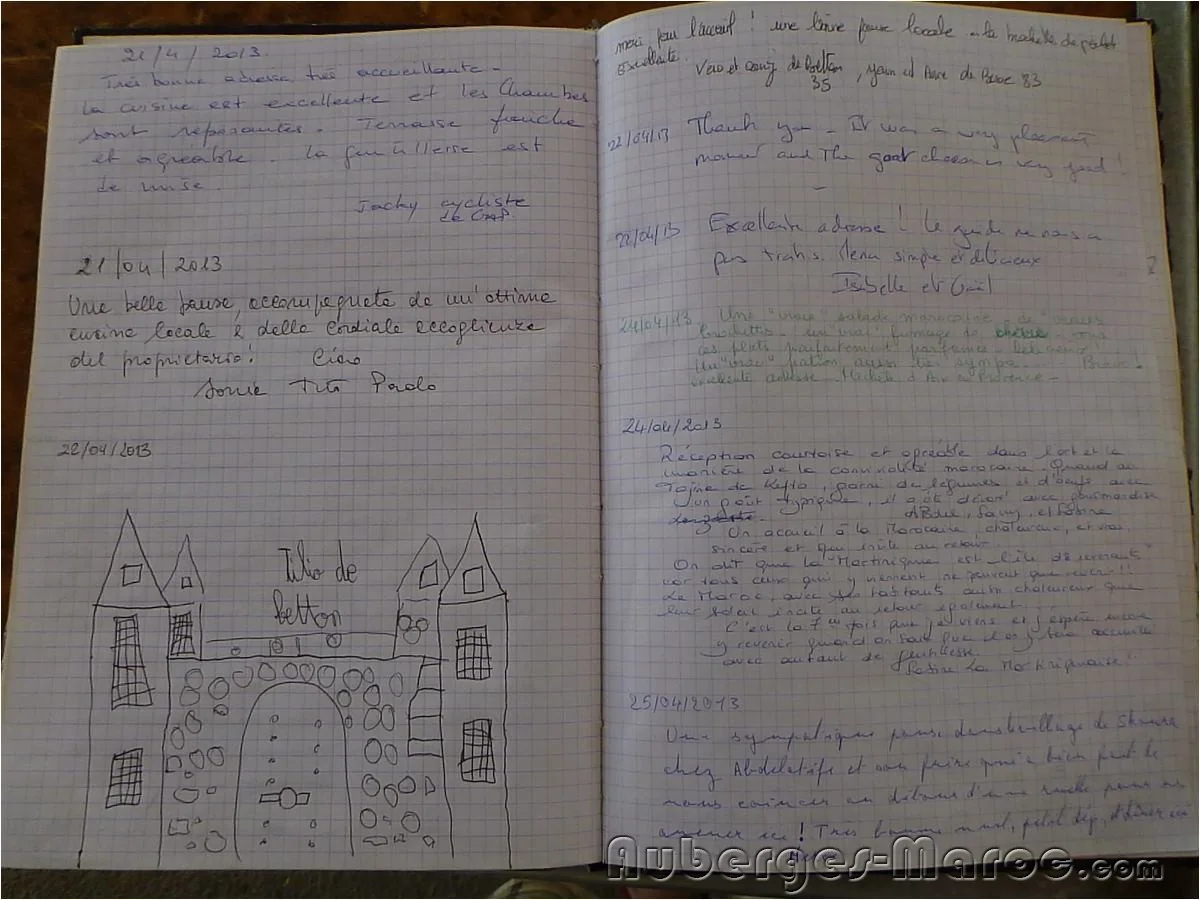 21/4/2013.
Très bonne adresse très accueillante.
La cuisine est excellente et les chambres
sont reposantes. Terrasse fraîche
et agréable. La gentillesse est
de mise.
Jacky cycliste
de
21/04/2013
Una bella pausa, accompagnata da un'ottima
cucina locale e della cordiale accoglienza
del proprietario! Ciao
Sonia Tito Paolo
22/04/2013
Tilio de
betton
merci pour l'accueil ! une bonne pause locale
Excellente.
de Betton, et de 83
35
22/04/13 Thank you - It was a very pleasant
moment and The goat cheese is very good !
22/04/13 Excellente adresse ! Le guide ne nous a
pas trahis. Menu simple et délicieux
Isabelle et
24/04/13 Une "vraie" salade marocaine - de "vraies
brochettes - un "vrai" fromage de chèvre - tous
ces plats parfaitement parfumés
Un "vrai" patron aussi très sympa - Bravo !
excellente adresse. d'Aix en Provence -
24/04/2013
Réception courtoise et agréable dans l'art et la
manière de la convivialité marocaine. Quand au
Tajine de Kefta, garni de légumes et d'oeufs avec
un goût typique, il a été dévoré avec gourmandise
Abdel, Samy, et Sabine
Un accueil à la Marocaine, chaleureux, et vrai,
sincère et qui invite au retour.
On dit que la "Martinique est l'île de revenants"
car tous ceux qui y viennent ne peuvent que revenir !!
Le Maroc, avec ses habitants aussi chaleureux que
leur soleil incite au retour également...
C'est la 7ème fois que j'y viens et j'espère encore
y revenir quand on sait que l'on y sera accueilli
avec autant de gentillesse.
Sabine La Martiniquaise !
25/04/2013
Une sympathique pause dans le village de Skoura
chez Abdelatife et son frère qui a bien fait de
nous coincer au détour d'une ruelle pour nous
amener ici ! Très bonne nuit, petit dej, et dîner ici
Auberges-Maroc.com